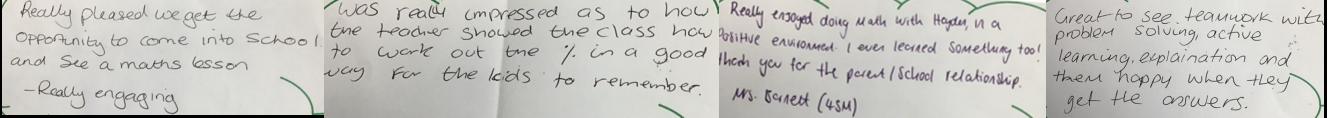 Really pleased we get the
opportunity to come into School
and see a maths lesson
-Really engaging
Was really impressed as to how
the teacher showed the class how
to work out the % in a good
way for the kids to remember.
Really enjoyed doing Math with Hayden, in a
Positive environment. I even learned something too!
Thank you for the parent/School relationship.
Mrs. Barnett (4SM)
Great to see teamwork with
problem solving, active
learning, explaination and
them happy when they
get the answers.